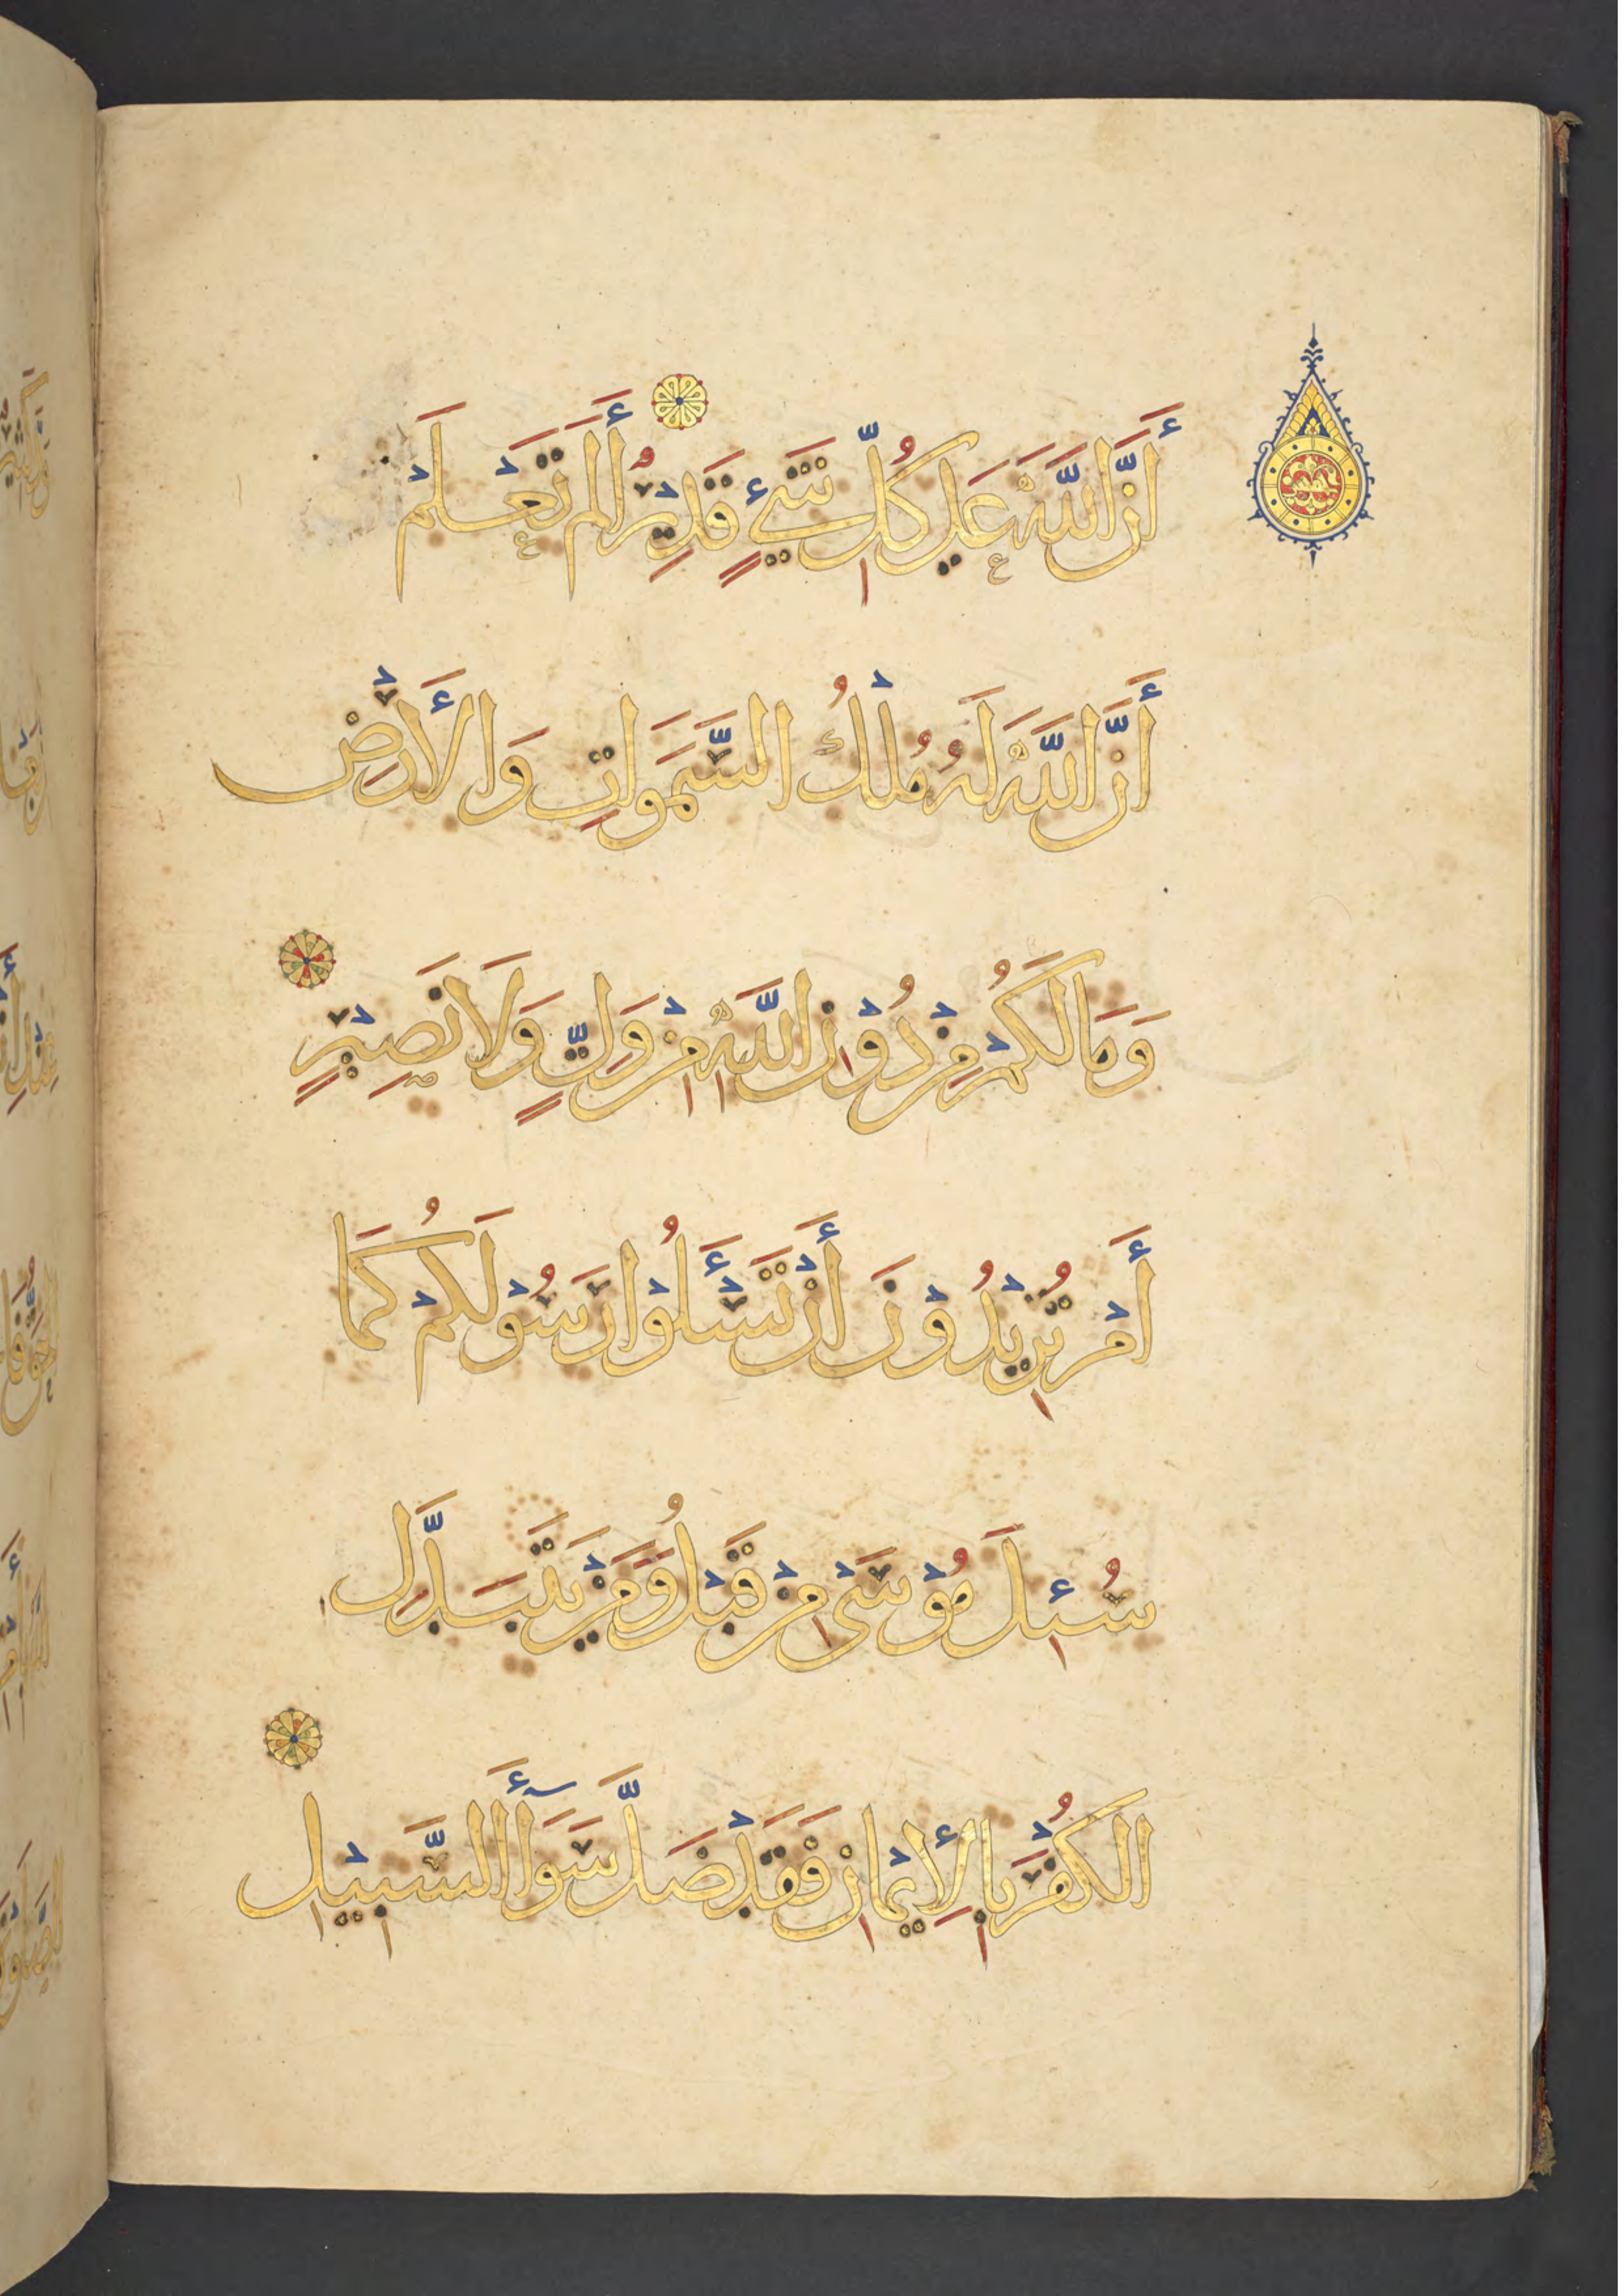 أَنَّ اللَّهَ عَلَى كُلِّ شَيْءٍ قَدِيْرٌ أَلَمْ تَعْلَمْ
أَنَّ اللَّهَ لَهُ مُلْكُ السَّمَوَاتِ وَالْأَرْضِ
وَمَا لَكُمْ مِنْ دُوْنِ اللَّهِ مِنْ وَلِيٍّ وَلَا نَصِيْرٍ
أَمْ تُرِيْدُوْنَ أَنْ تَسْأَلُوْا رَسُوْلَكُمْ كَمَا
سُئِلَ مُوْسَى مِنْ قَبْلُ وَمَنْ يَتَبَدَّلِ
الْكُفْرَ بِالْإِيْمَانِ فَقَدْ ضَلَّ سَوَآءَ السَّبِيْلِ